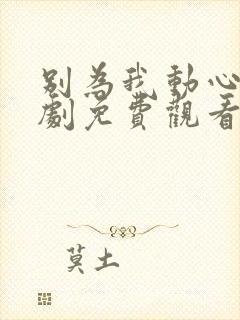 别為我動心
劇免費觀看
莫土